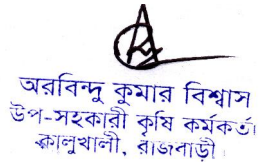 অরবিন্দু কুমার বিশ্বাস
উপ-সহকারী কৃষি কর্মকর্তা
কালুখালী, রাজবাড়ী।